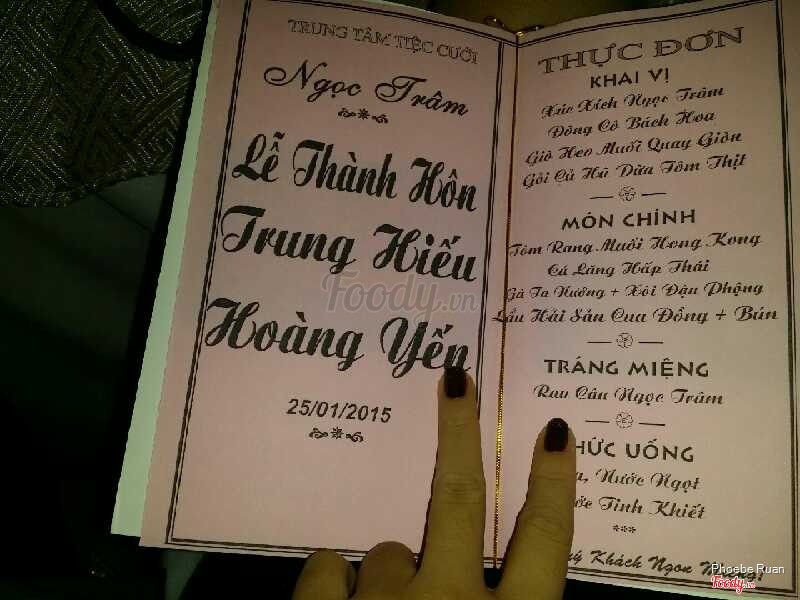 TRUNG TÂM TIỆC CƯỚI
Ngọc Trâm
Lễ Thành Hôn
Trung Hiếu
Hoàng Yến
25/01/2015
THỰC ĐƠN
KHAI VỊ
Xúc Xích Ngọc Trâm
Đông Cô Bách Hoa
Giò Heo Muối Quay Giòn
Gỏi Củ Hũ Dừa Tôm Thịt
MÓN CHÍNH
Tôm Rang Muối Hong Kong
Cá Lăng Hấp Thái
Gà Ta Nướng + Xôi Đậu Phộng
Lẩu Hải Sản Cua Đồng + Bún
TRÁNG MIỆNG
Rau Câu Ngọc Trâm
HỨC UỐNG
Nước Ngọt
Tinh Khiết
***
Khách Ngon
Foody.vn
Phoebe Ruan
Foody.vn